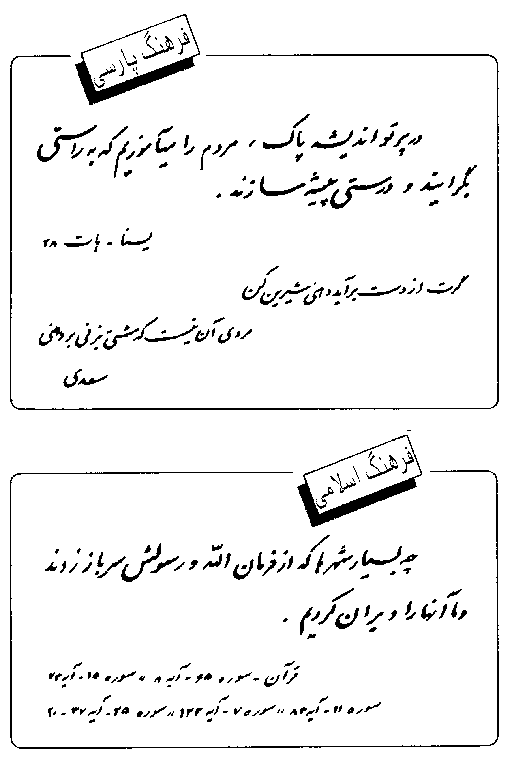 فرهنگ پارسی
در پرتو اندیشه پاک ، مردم را میآموزیم که به راستی
بگرایند و درستی پیشه سازند .
یسنا - هات ۲۸
گرت از دست برآید دهنی شیرین کن
مردی آن نیست که مشتی بزنی بر دهنی
سعدی
فرهنگ اسلامی
چه بسیار شهرها که از فرمان الله و رسولش سرباز زدند
و ما آنها را ویران کردیم .
قرآن - سوره ۶۵ - آیه ۸ ،، سوره ۱۵ - آیه
سوره ۱۱ - آیه ۸۲ ،، سوره ۷ - آیه ،، سوره ۲۵ - آیه